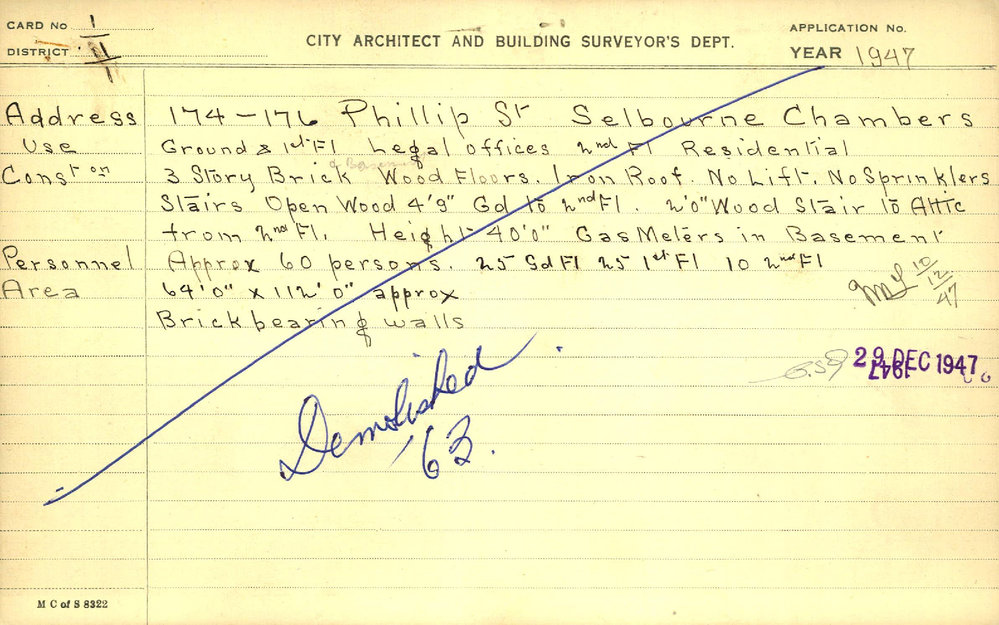 CARD No 1
DISTRICT 11/1
CITY ARCHITECT AND BUILDING SURVEYOR'S DEPT.
APPLICATION No.
YEAR 1947
Address 174-176 Phillip St Selbourne Chambers
Use Ground & 1st Fl Legal offices 2nd Fl Residential
& Basement
Const on 3 Story Brick Wood Floors. Iron Roof. No Lift. No Sprinklers
Stairs Open Wood 4'9" Gd to 2nd Fl. 2'0" Wood Stair to Attic
from 2nd Fl. Height 40'0" Gas Meters in Basement
Personnel Approx 60 persons. 25 Gd Fl 25 1st Fl 10 2nd Fl
Area 64'0" x 112'0" approx
10/12/47
Brick bearing walls
29 DEC 1947
Demolished
'63.
M C of S 8322